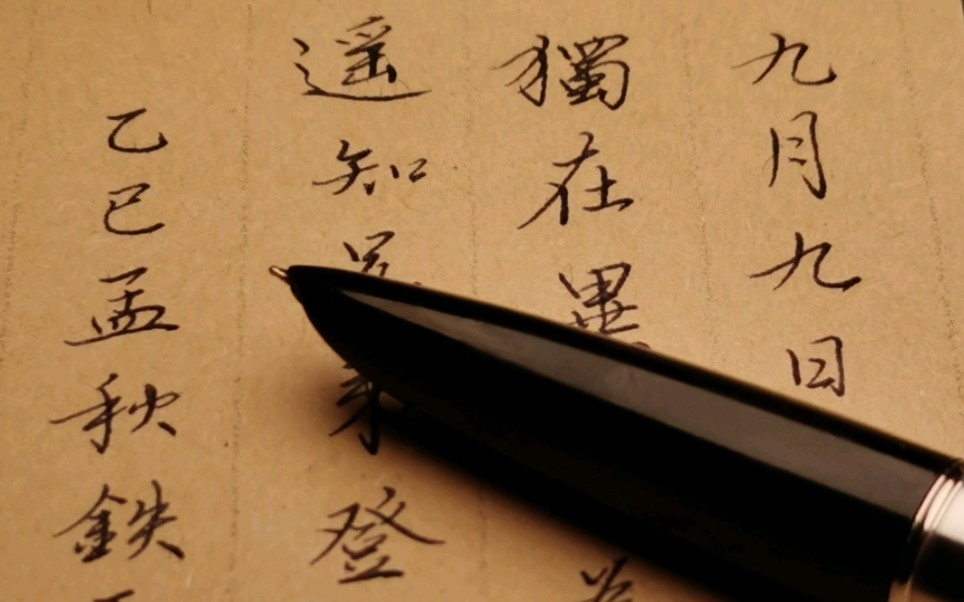 九月九日
獨在異
遥知兄弟登
乙巳孟秋鉄